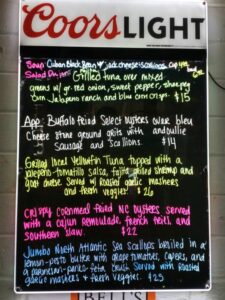 Coors LIGHT
Soup Cuban Black Bean jack cheese scallions cup
Salad Du Jour Grilled tuna over mixed
greens w/ gr. red onion, sweet pepper,
Jalapeno ranch and blue corn crisps $15
App: Buffalo fried Select oysters w/ bleu
Cheese stone ground grits with andouille
Sausage and Scallions $14
Grilled local Yellowfin Tuna topped with a
jalapeno-tomatillo salsa, fajita grilled shrimp and
goat cheese. Served w/ Roasted garlic mashers
and fresh veggies $26
Crispy cornmeal fried NC oysters served
with a cajun remoulade, french fries, and
southern slaw. $22
Jumbo North Atlantic Sea Scallops broiled in a
lemon-pesto butter with grape tomatoes, capers, and
a parmesan-panko-feta crust. Served with Roasted
garlic mashers + fresh veggies. $25
BELL'S